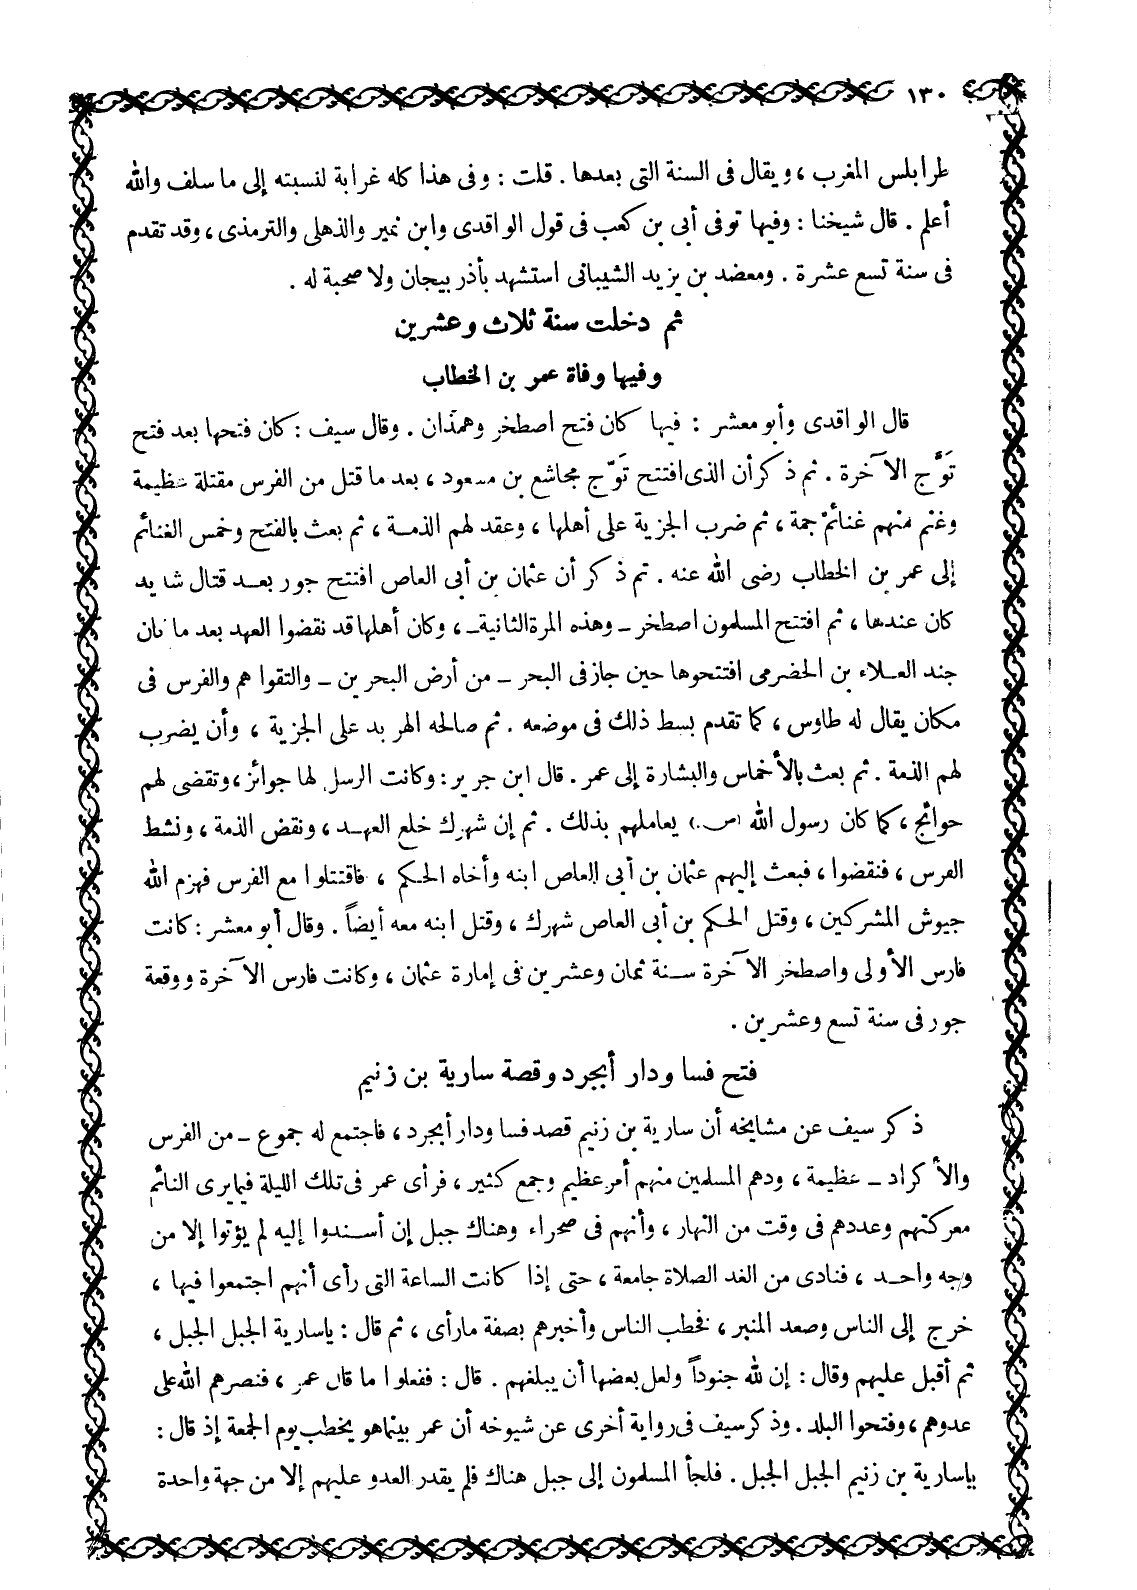 ١٣٠
طرابلس المغرب ، ويقال فى السنة التى بعدها . قلت : وفى هذا كله غرابة لنسبته إلى ما سلف والله
أعلم . قال شيخنا : وفيها توفى أبى بن كعب فى قول الواقدى وابن نمير والذهلى والترمذى ، وقد تقدم
فى سنة تسع عشرة . ومعضد بن يزيد الشيبانى استشهد بأذربيجان ولا صحبة له .
ثم دخلت سنة ثلاث وعشرين
وفيها وفاة عمر بن الخطاب
قال الواقدى وأبو معشر : فيها كان فتح اصطخر وهمذان . وقال سيف : كان فتحها بعد فتح
تَوَّج الآخرة . ثم ذكر أن الذى افتتح تَوّج مجاشع بن مسعود ، بعد ما قتل من الفرس مقتلة عظيمة
وغنم منهم غنائم جمة ، ثم ضرب الجزية على أهلها ، وعقد لهم الذمة ، ثم بعث بالفتح وخمس الغنائم
إلى عمر بن الخطاب رضى الله عنه . ثم ذكر أن عثمان بن أبى العاص افتتح جور بعد قتال شديد
كان عندها ، ثم افتتح المسلمون اصطخر ــ وهذه المرة الثانية ــ ، وكان أهلها قد نقضوا العهد بعد ما كان
جند العلاء بن الحضرمى افتتحوها حين جاز فى البحر ــ من أرض البحرين ــ والتقوا هم والفرس فى
مكان يقال له طاوس ، كما تقدم بسط ذلك فى موضعه . ثم صالحه الهربد على الجزية ، وأن يضرب
لهم الذمة . ثم بعث بالأخماس والبشارة إلى عمر . قال ابن جرير : وكانت الرسل لها جوائز ، وتقضى لهم
حوائج ، كما كان رسول الله (ص) يعاملهم بذلك . ثم إن شهرك خلع العهد ، ونقض الذمة ، ونشط
الفرس ، فنقضوا ، فبعث إليهم عثمان بن أبى العاص ابنه وأخاه الحكم ، فاقتتلوا مع الفرس فهزم الله
جيوش المشركين ، وقتل الحكم بن أبى العاص شهرك ، وقتل ابنه معه أيضاً . وقال أبو معشر : كانت
فارس الأولى واصطخر الآخرة سنة ثمان وعشرين فى إمارة عثمان ، وكانت فارس الآخرة ووقعة
جور فى سنة تسع وعشرين .
فتح فسا ودار أبجرد وقصة سارية بن زنيم
ذكر سيف عن مشايخه أن سارية بن زنيم قصد فسا ودار أبجرد ، فاجتمع له جموع ــ من الفرس
والأكراد ــ عظيمة ، ودهم المسلمين منهم أمر عظيم وجمع كثير ، فرأى عمر فى تلك الليلة فيما يرى النائم
معركتهم وعددهم فى وقت من النهار ، وأنهم فى صحراء وهناك جبل إن أسندوا إليه لم يؤتوا إلا من
وجه واحد ، فنادى من الغد الصلاة جامعة ، حتى إذا كانت الساعة التى رأى أنهم اجتمعوا فيها ،
خرج إلى الناس وصعد المنبر ، فخطب الناس وأخبرهم بصفة ما رأى ، ثم قال : يا سارية الجبل الجبل ،
ثم أقبل عليهم وقال : إن لله جنوداً ولعل بعضها أن يبلغهم . قال : ففعلوا ما قال عمر ، فنصرهم الله على
عدوهم ، وفتحوا البلد . وذكر سيف فى رواية أخرى عن شيوخه أن عمر بينما هو يخطب يوم الجمعة إذ قال :
يا سارية بن زنيم الجبل الجبل . فلجأ المسلمون إلى جبل هناك فلم يقدر العدو عليهم إلا من جهة واحدة